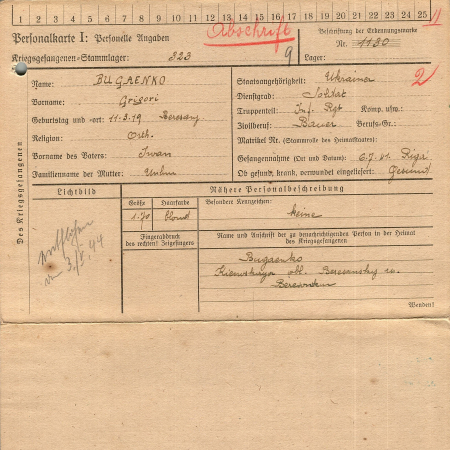 1 2 3 4 5 6 7 8 9 10 11 12 13 14 15 16 17 18 19 20 21 22 23 24 25
Abschrift
4
Personalkarte I: Personelle Angaben
Beschriftung der Erkennungsmarke
Nr. 1130
Kriegsgefangenen-Stammlager: 323
9
Lager:
2
Des Kriegsgefangenen
Name: BUGAENKO
Vorname: Grigori
Geburtstag und -ort: 11.3.19 Beresany
Religion: Orth.
Vorname des Vaters: Iwan
Familienname der Mutter:
Staatsangehörigkeit: Ukrainer
Dienstgrad: Soldat
Truppenteil: Inf. Rgt Komp. usw.:
Zivilberuf: Bauer Berufs-Gr.:
Matrikel Nr. (Stammrolle des Heimatstaates):
Gefangennahme (Ort und Datum): 6.7.41. Riga
Ob gesund, krank, verwundet eingeliefert: Gesund
Lichtbild
Nähere Personalbeschreibung
Größe
Haarfarbe
Besondere Kennzeichen:
1.70
blond
keine
Fingerabdruck
des rechten! Zeigefingers
Name und Anschrift der zu benachrichtigenden Person in der Heimat
des Kriegsgefangenen
entflohen
Bugaenko
obl.
Wenden!